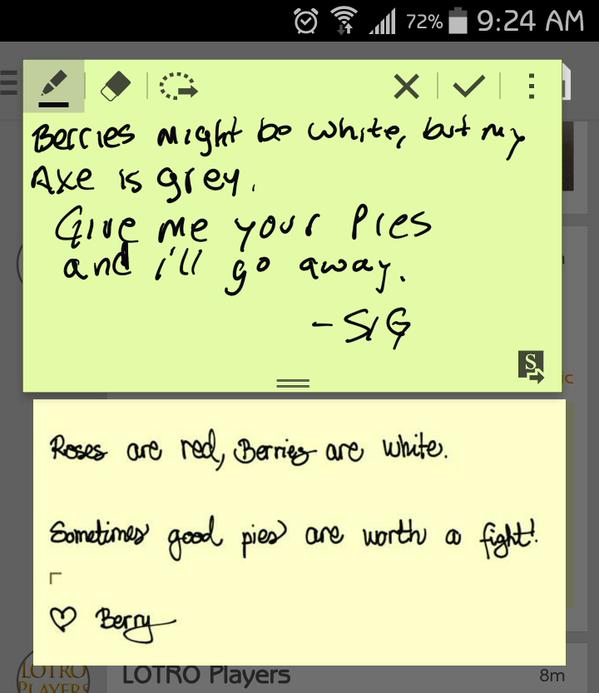 72% 9:24 AM
Berries might be white, but my
Axe is grey.
Give me your Pies
and i'll go away.
- SIG
S
Roses are red, Berries are white.
Sometimes good pies are worth a fight!
♡ Berry
LOTRO
PLAYERS
LOTRO Players 8m